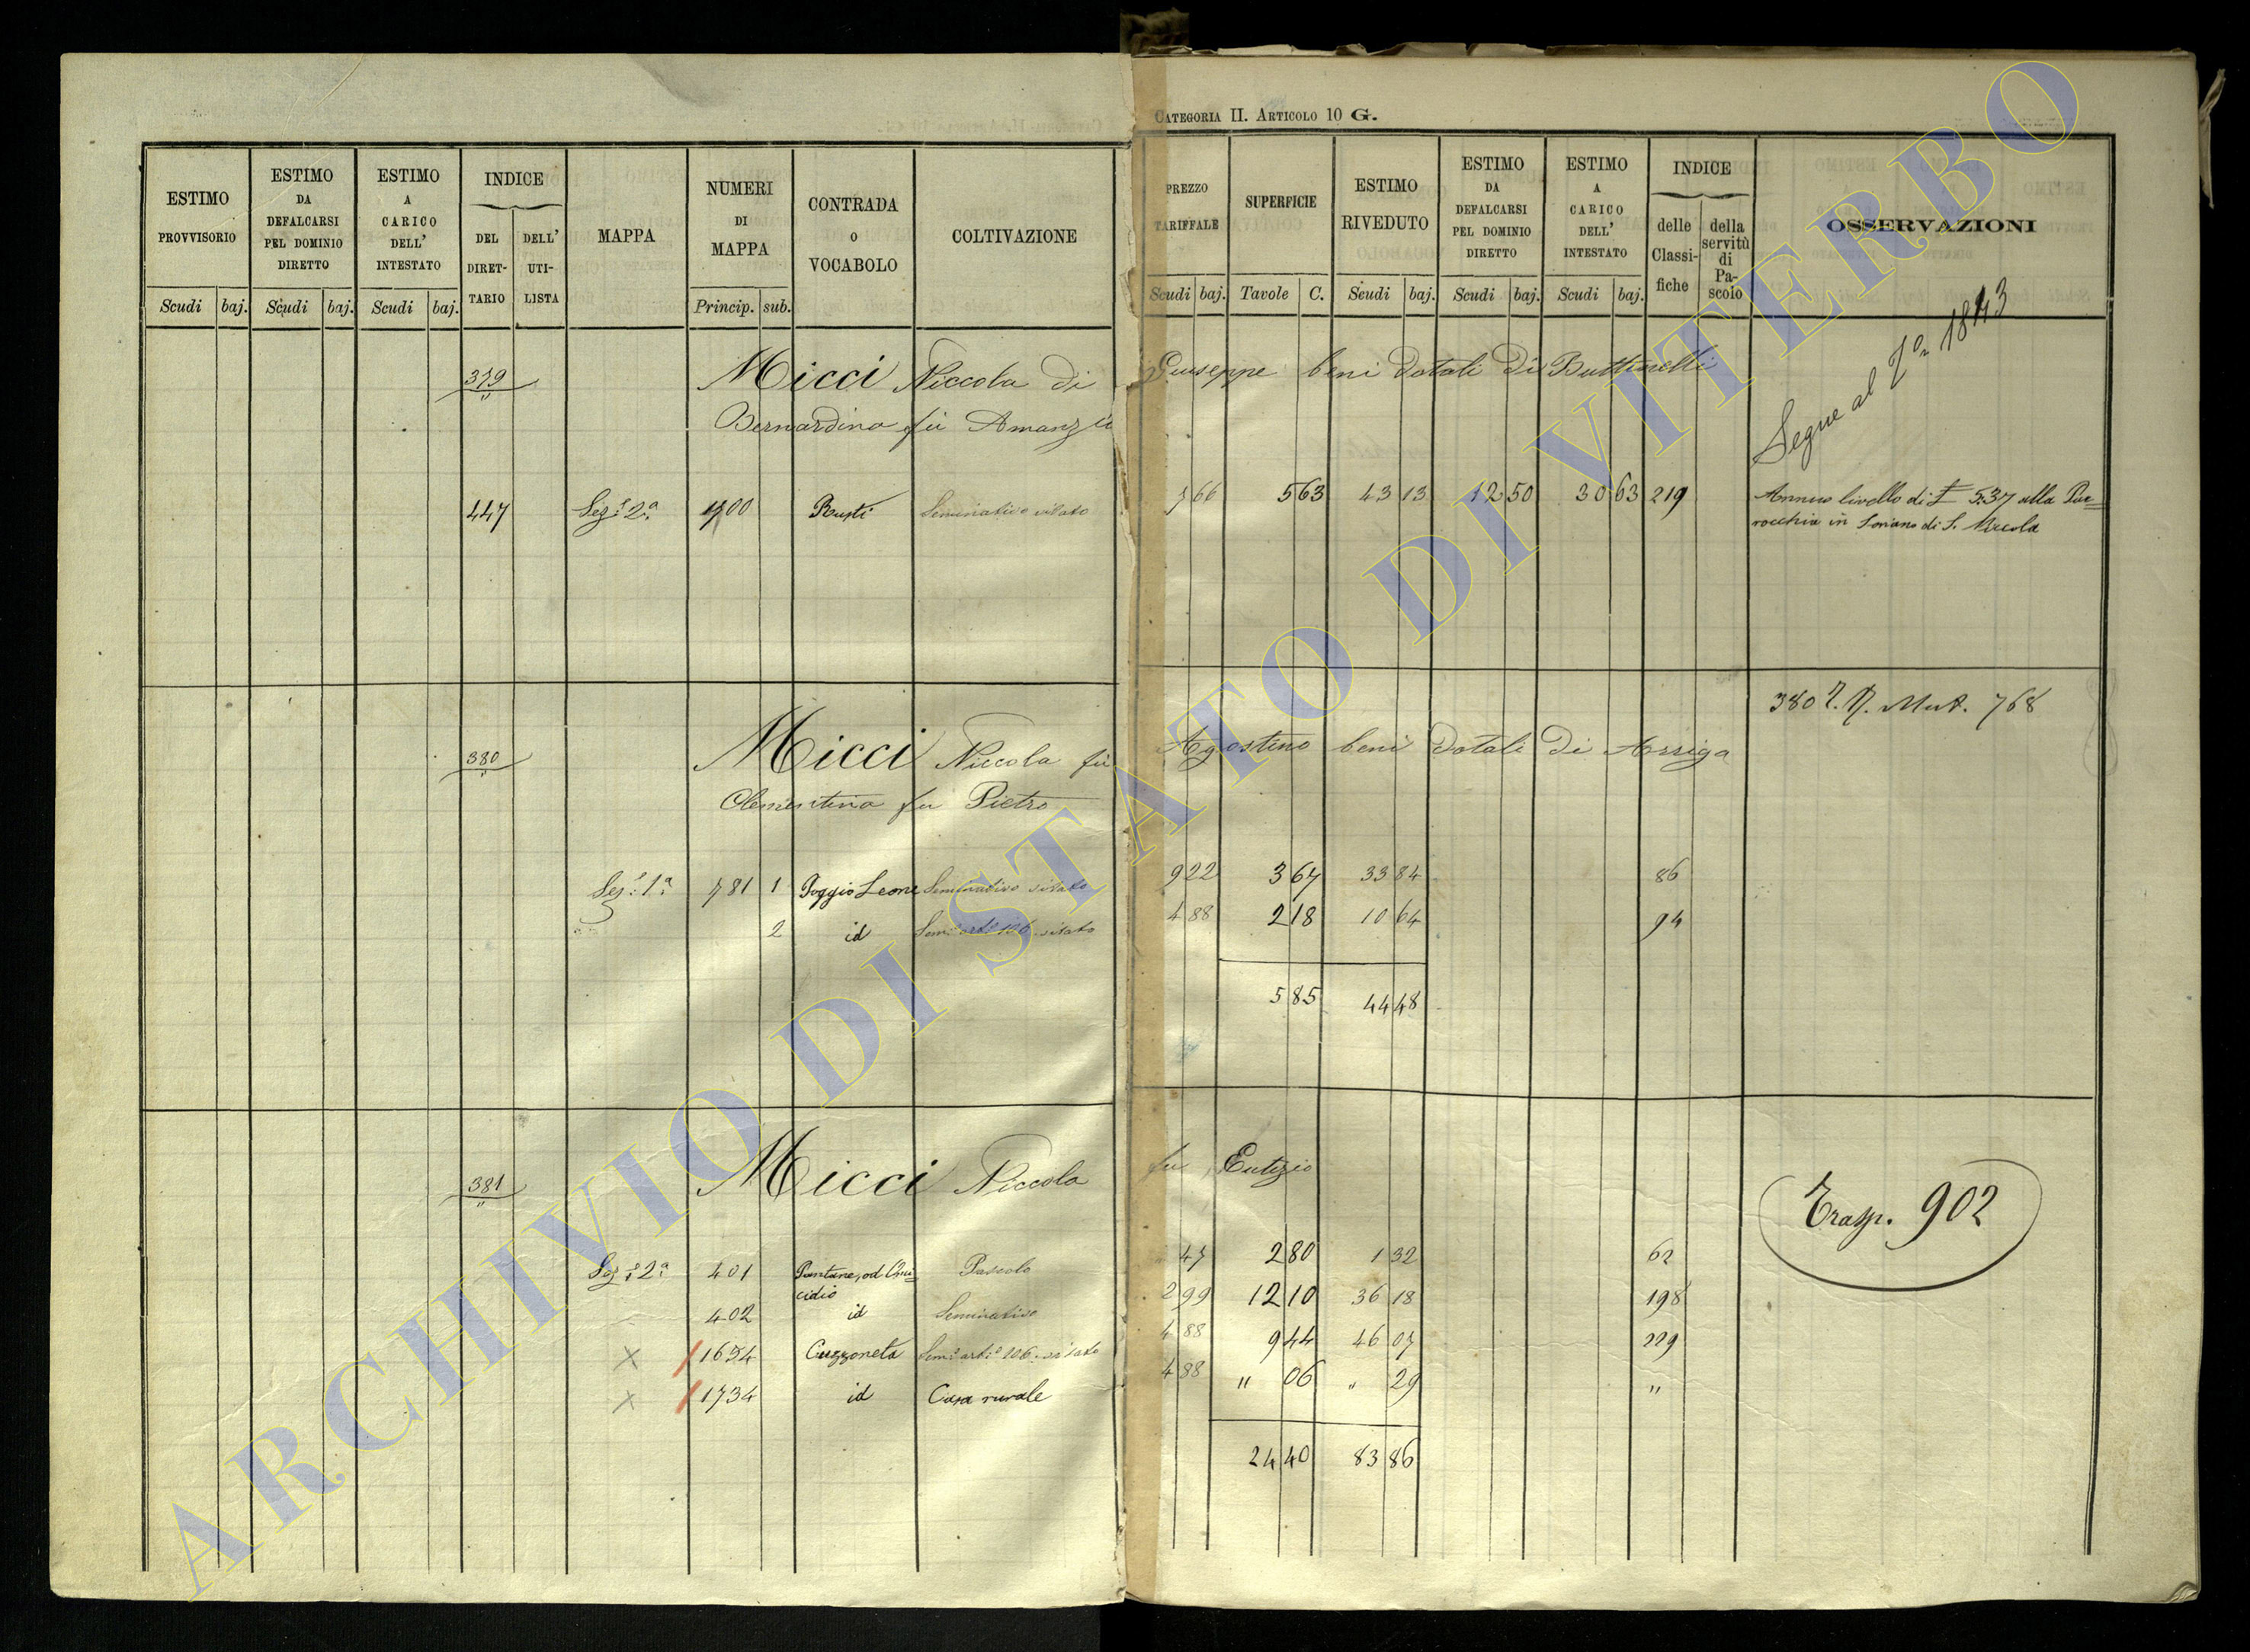 CATEGORIA II. ARTICOLO 10 G.
ESTIMO PROVVISORIO
ESTIMO DA DEFALCARSI PEL DOMINIO DIRETTO
ESTIMO A CARICO DELL' INTESTATO
INDICE
DEL DIRET-TARIO
DELL' UTI-LISTA
MAPPA
NUMERI DI MAPPA
CONTRADA O VOCABOLO
COLTIVAZIONE
PREZZO TARIFFALE
SUPERFICIE
ESTIMO RIVEDUTO
ESTIMO DA DEFALCARSI PEL DOMINIO DIRETTO
ESTIMO A CARICO DELL' INTESTATO
INDICE
delle Classi-fiche
della servitù di Pa-scolo
OSSERVAZIONI
Scudi baj. Scudi baj. Scudi baj. Princip. sub. Scudi baj. Tavole C. Scudi baj. Scudi baj. Scudi baj.
379 Micci Niccola di Giuseppe beni dotali di Buttinelli
Bernardina fu Amanzio
Segue al 1843
447 Sez.e 2a 1700 Rusti Seminativo vitato 7 66 5 63 43 13 12 50 30 63 219 Annuo livello di £ 5.37 alla Par=
rocchia in Soriano di S. Niccola
380 Mut. 768
380 Micci Niccola fu Agostino beni dotali di Arriga
Clementina fu Pietro
Sez.e 1a 781 1 Poggio Leone Seminativo vitato 9 22 3 67 33 84 86
2 id Sem.o art.o 106 vitato 4 88 2 18 10 64 94
5 85 44 48
381 Micci Niccola fu Eutizio
Trasp. 902
Sez.e 2a 401 Pantane, od Omi-
cidio Pascolo 47 2 80 1 32 62
402 id Seminativo 2 99 12 10 36 18 198
X 1654 Cuzzoneta Sem.o art.o 106 vitato 4 88 9 44 46 07 229
X 1734 id Casa rurale 4 88 " 06 " 29 "
24 40 83 86
ARCHIVIO DI STATO DI VITERBO